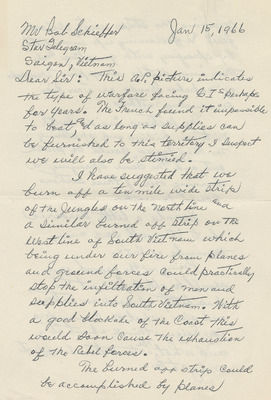 Mr Bob Schieffer Jan 15, 1966
Star Telegram
Saigon, Vietnam
Dear Sir: This A.P. picture indicates
the type of warfare facing G.I's perhaps
for years. The French found it impossible
to beat, and as long as supplies can
be furnished to this territory I suspect
we will also be stimied.
I have suggested that we
burn off a ten mile wide strip
of the Jungles on the north line and
a similar burned off strip on the
West line of South Viet nam which
being under our fire from planes
and ground forces could practically
stop the infiltration of men and
supplies into South Vietnam. With
a good blockade of the Coast this
would soon cause the exhaustion
of the Rebel forces.
The burned off strip could
be accomplished by planes